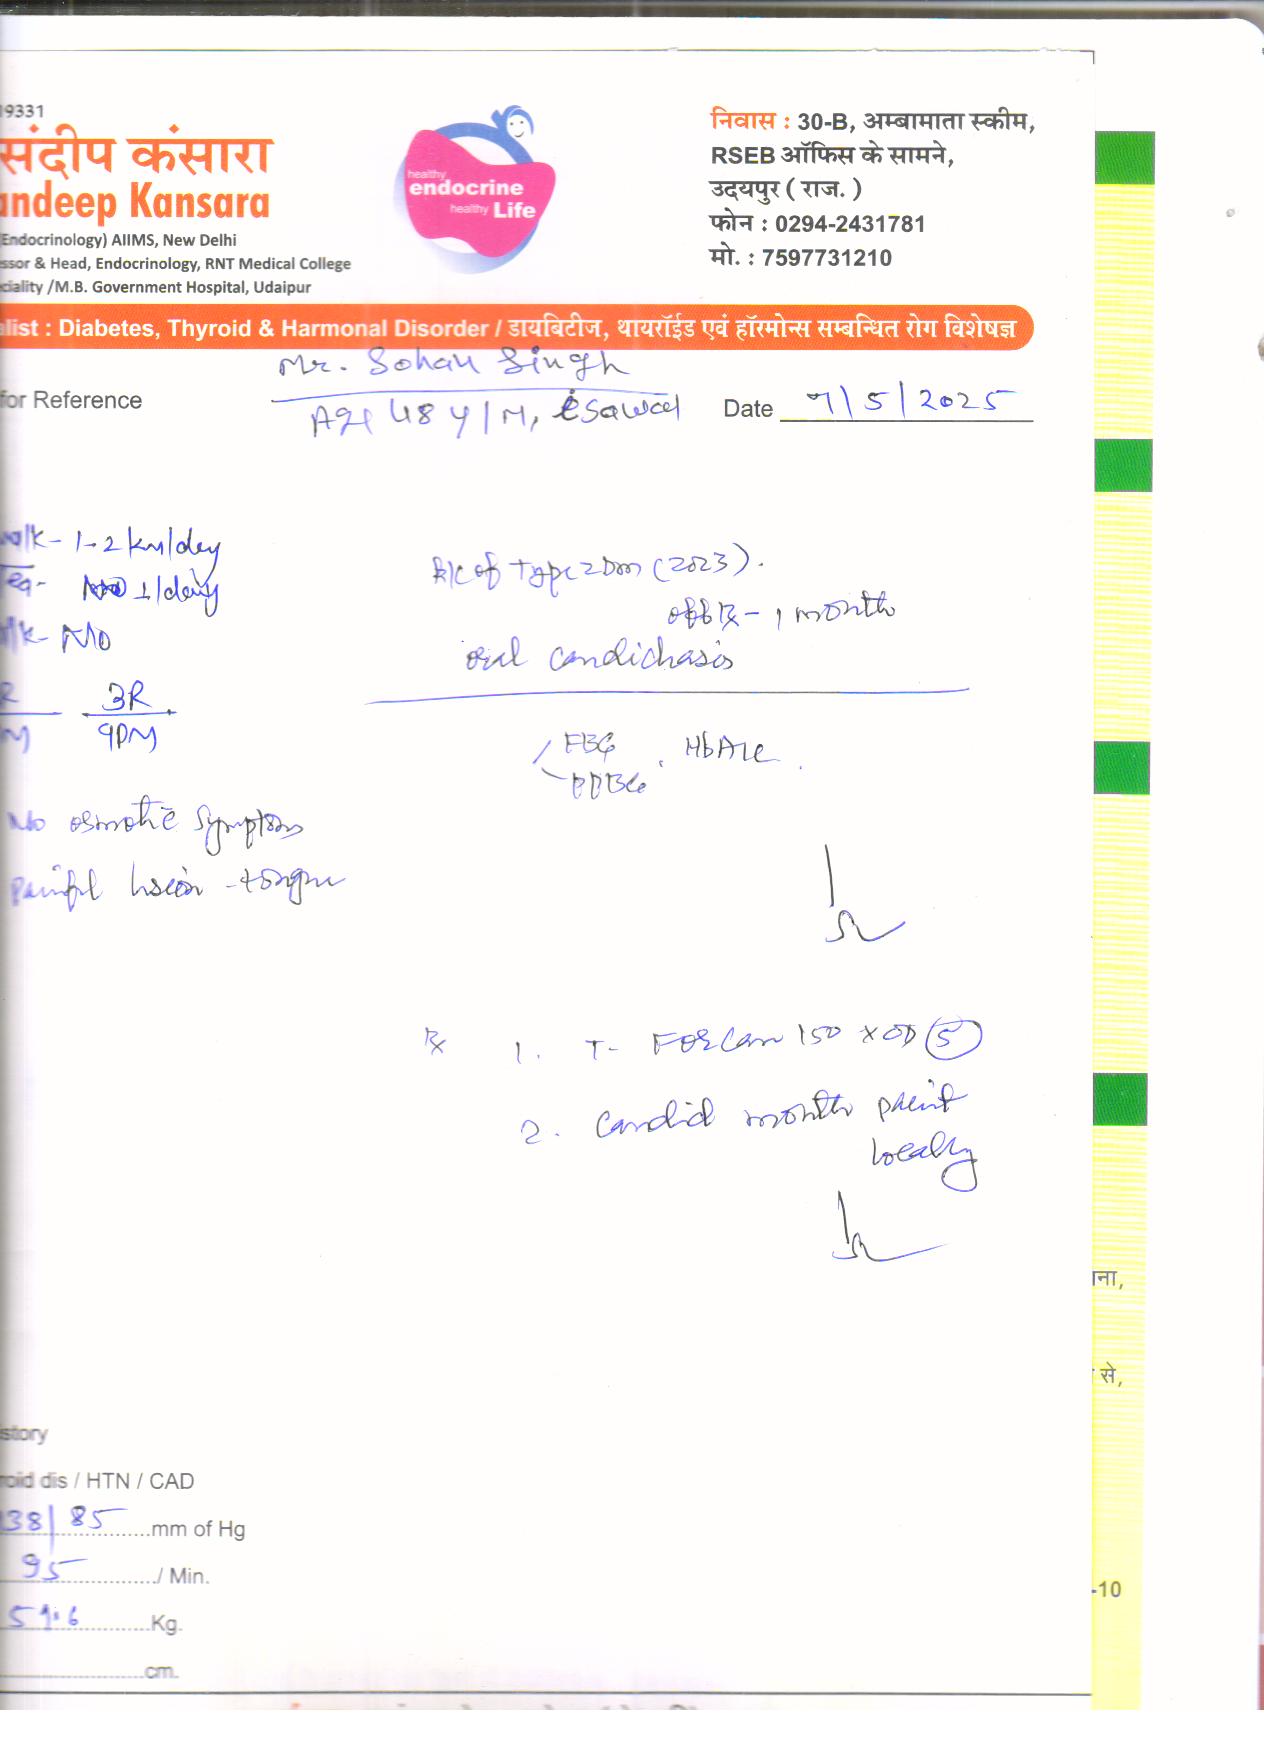 19331
संदीप कंसारा
andeep Kansara
(Endocrinology) AIIMS, New Delhi
ssor & Head, Endocrinology, RNT Medical College
ciality /M.B. Government Hospital, Udaipur
healthy
endocrine
healthy Life
निवास : 30-B, अम्बामाता स्कीम,
RSEB ऑफिस के सामने,
उदयपुर ( राज. )
फोन : 0294-2431781
मो. : 7597731210
alist : Diabetes, Thyroid & Harmonal Disorder / डायबिटीज, थायरॉईड एवं हॉरमोन्स सम्बन्धित रोग विशेषज्ञ
Mr. Sohan Singh
for Reference
Age 48 y/M,
Date 7/5/2025
walk - 1-2 km/day
1/day
- NO
3R
9PM
k/c of type 2 Dm (2023).
off Rx - 1 month
oral candidiasis
FBG
PPBG
HbA1c
No osmotic symptoms
painful lesion - tongue
Rx 1. T- Forcan 150 x OD 5
2. Candid mouth paint
locally
istory
roid dis / HTN / CAD
38/85 mm of Hg
95 / Min.
Kg.
cm.
ाना,
से,
-10